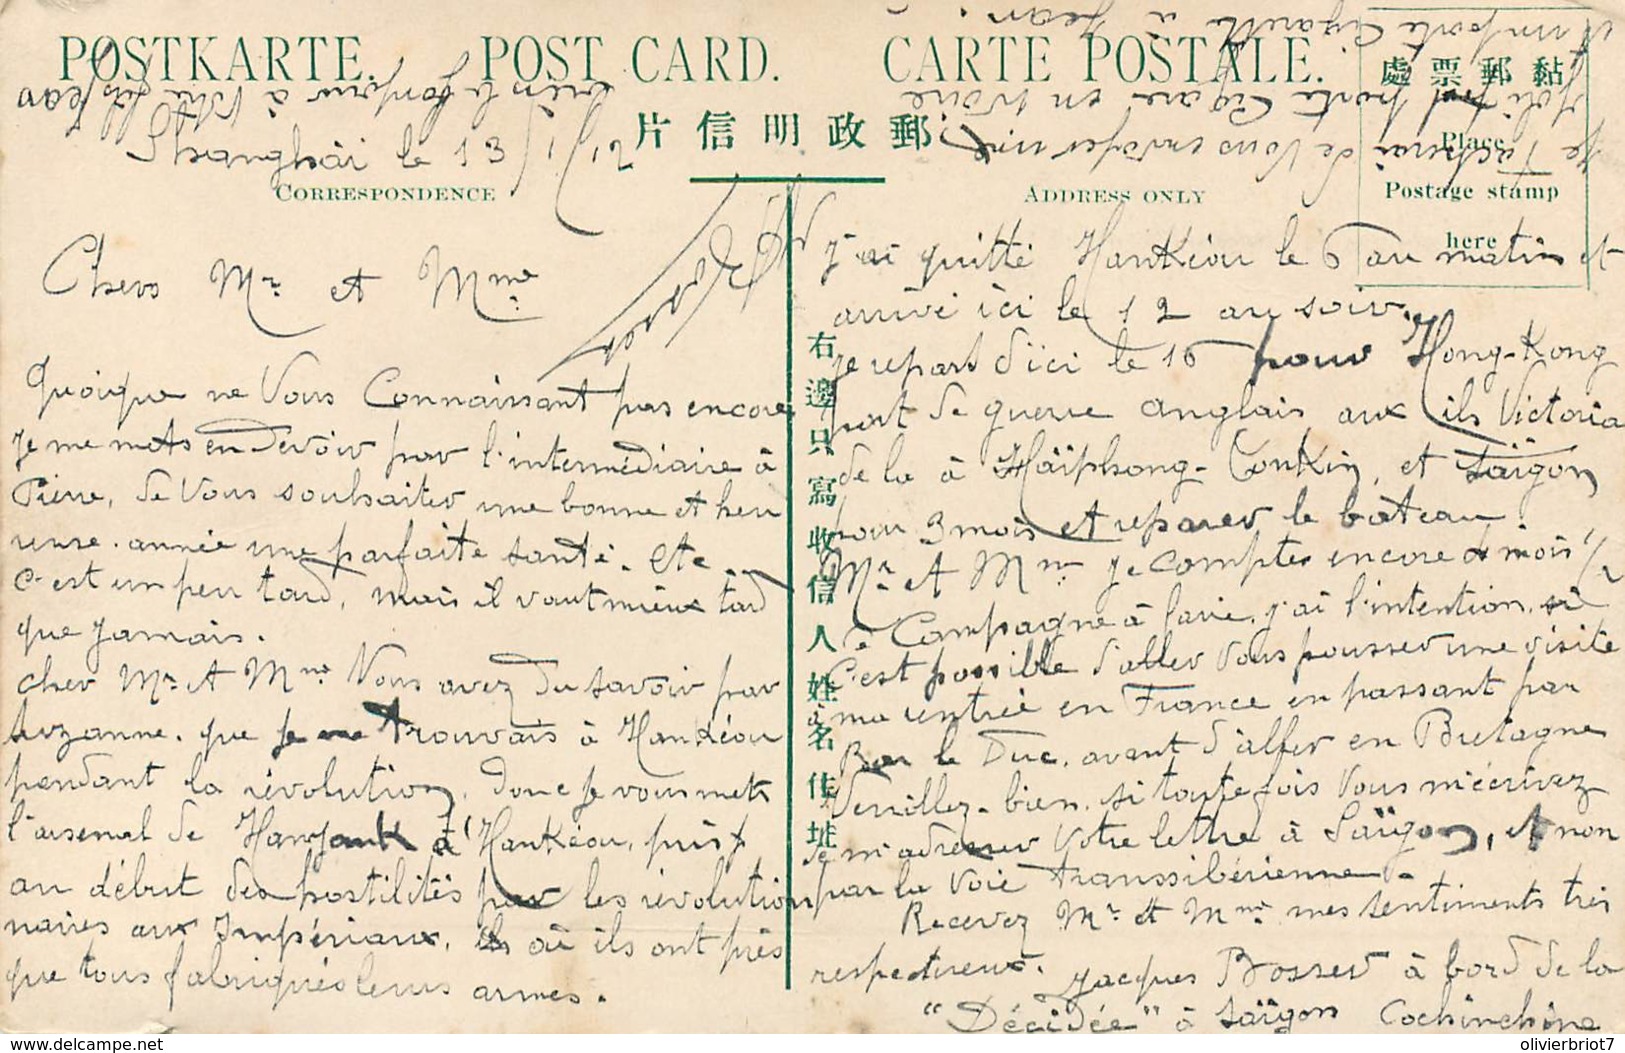 POSTKARTE. POST CARD. CARTE POSTALE.
郵政明信片
黏郵票處
Place
Postage stamp
here
CORRESPONDENCE
ADDRESS ONLY
右邊只寫收信人姓名住址
Shanghäi le 13/1/12
Chers Mr et Mme
Quoique ne Vous Connaissant pas encore,
je me mets en devoir par l'intermédiaire à
Pierre, de Vous souhaiter une bonne et heu
reuse année une parfaite santé. Etc
C'est un peu tard, mais il vaut mieux tard
que jamais.
cher Mr et Mme Vous avez du savoir par
Suzanne. que je me trouvais à Hankéou
pendant la révolution, donc je vous mets
l'arsenal de Hanyank à Hankéou, pris
au début des hostilités par les révolution
naires aux Impériaux, où ils ont près
que tous fabriqués leurs armes.
J'ai quitté Hankéou le 6 au matin et
arrivé ici le 12 au soir.
je repart d'ici le 16 pour Hong-Kong
port de guerre anglais aux ils Victoria
de la à Häiphong-Tonkin, et Saïgon
pour 3 mois et reparer le bateau.
Mr et Mme je compte encore 4 mois 1/2
Campagne à faire, j'ai l'intention, si
C'est possible d'aller Vous pousser une visite
à ma rentrée en France en passant par
Bar le Duc, avant d'aller en Bretagne
Veuillez-bien, si toute fois Vous m'écrivez
de m'adresser Votre lettre à Saïgon, et non
par la Voie transsibérienne.
Recevez Mr et Mme mes sentiments très
respectueux. Jacques Bosser à bord de la
"Décidée" à Saïgon Cochinchine
Je tacherai de Vous envoyer une
Joli porte Cigare en ivoire
et un porte Cigarette à Jean.
bien le bonjour à Votre fils Jean
olivierbriot7